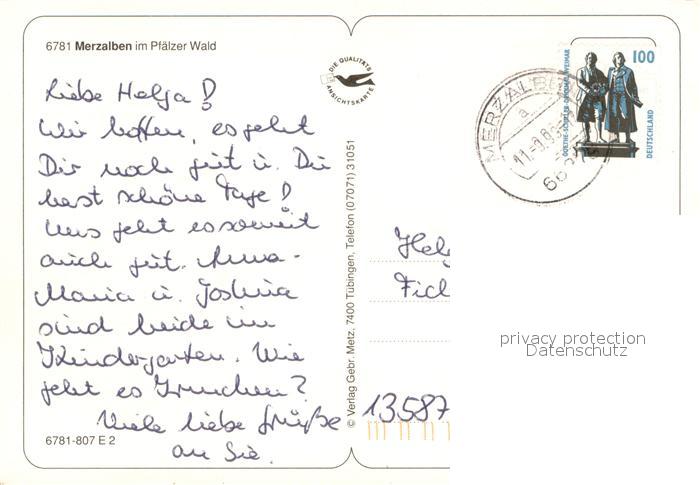 6781 Merzalben im Pfälzer Wald
Liebe Helga!
Wir hoffen, es geht
Dir noch gut u. Du
hast schöne Tage!
Uns geht es soweit
auch gut. Anna-
Maria u. Joshua
sind beide im
Kindergarten. Wie
geht es
Viele liebe Grüße
an Sie.
6781-807 E 2
DIE QUALITÄTS
ANSICHTSKARTE
© Verlag Gebr. Metz, 7400 Tübingen, Telefon (07071) 31051
MERZALBEN
a
11.-9.8
66
100
GOETHE-SCHILLER-DENKMAL WEIMAR
DEUTSCHLAND
Helg
Fich
13587
privacy protection
Datenschutz